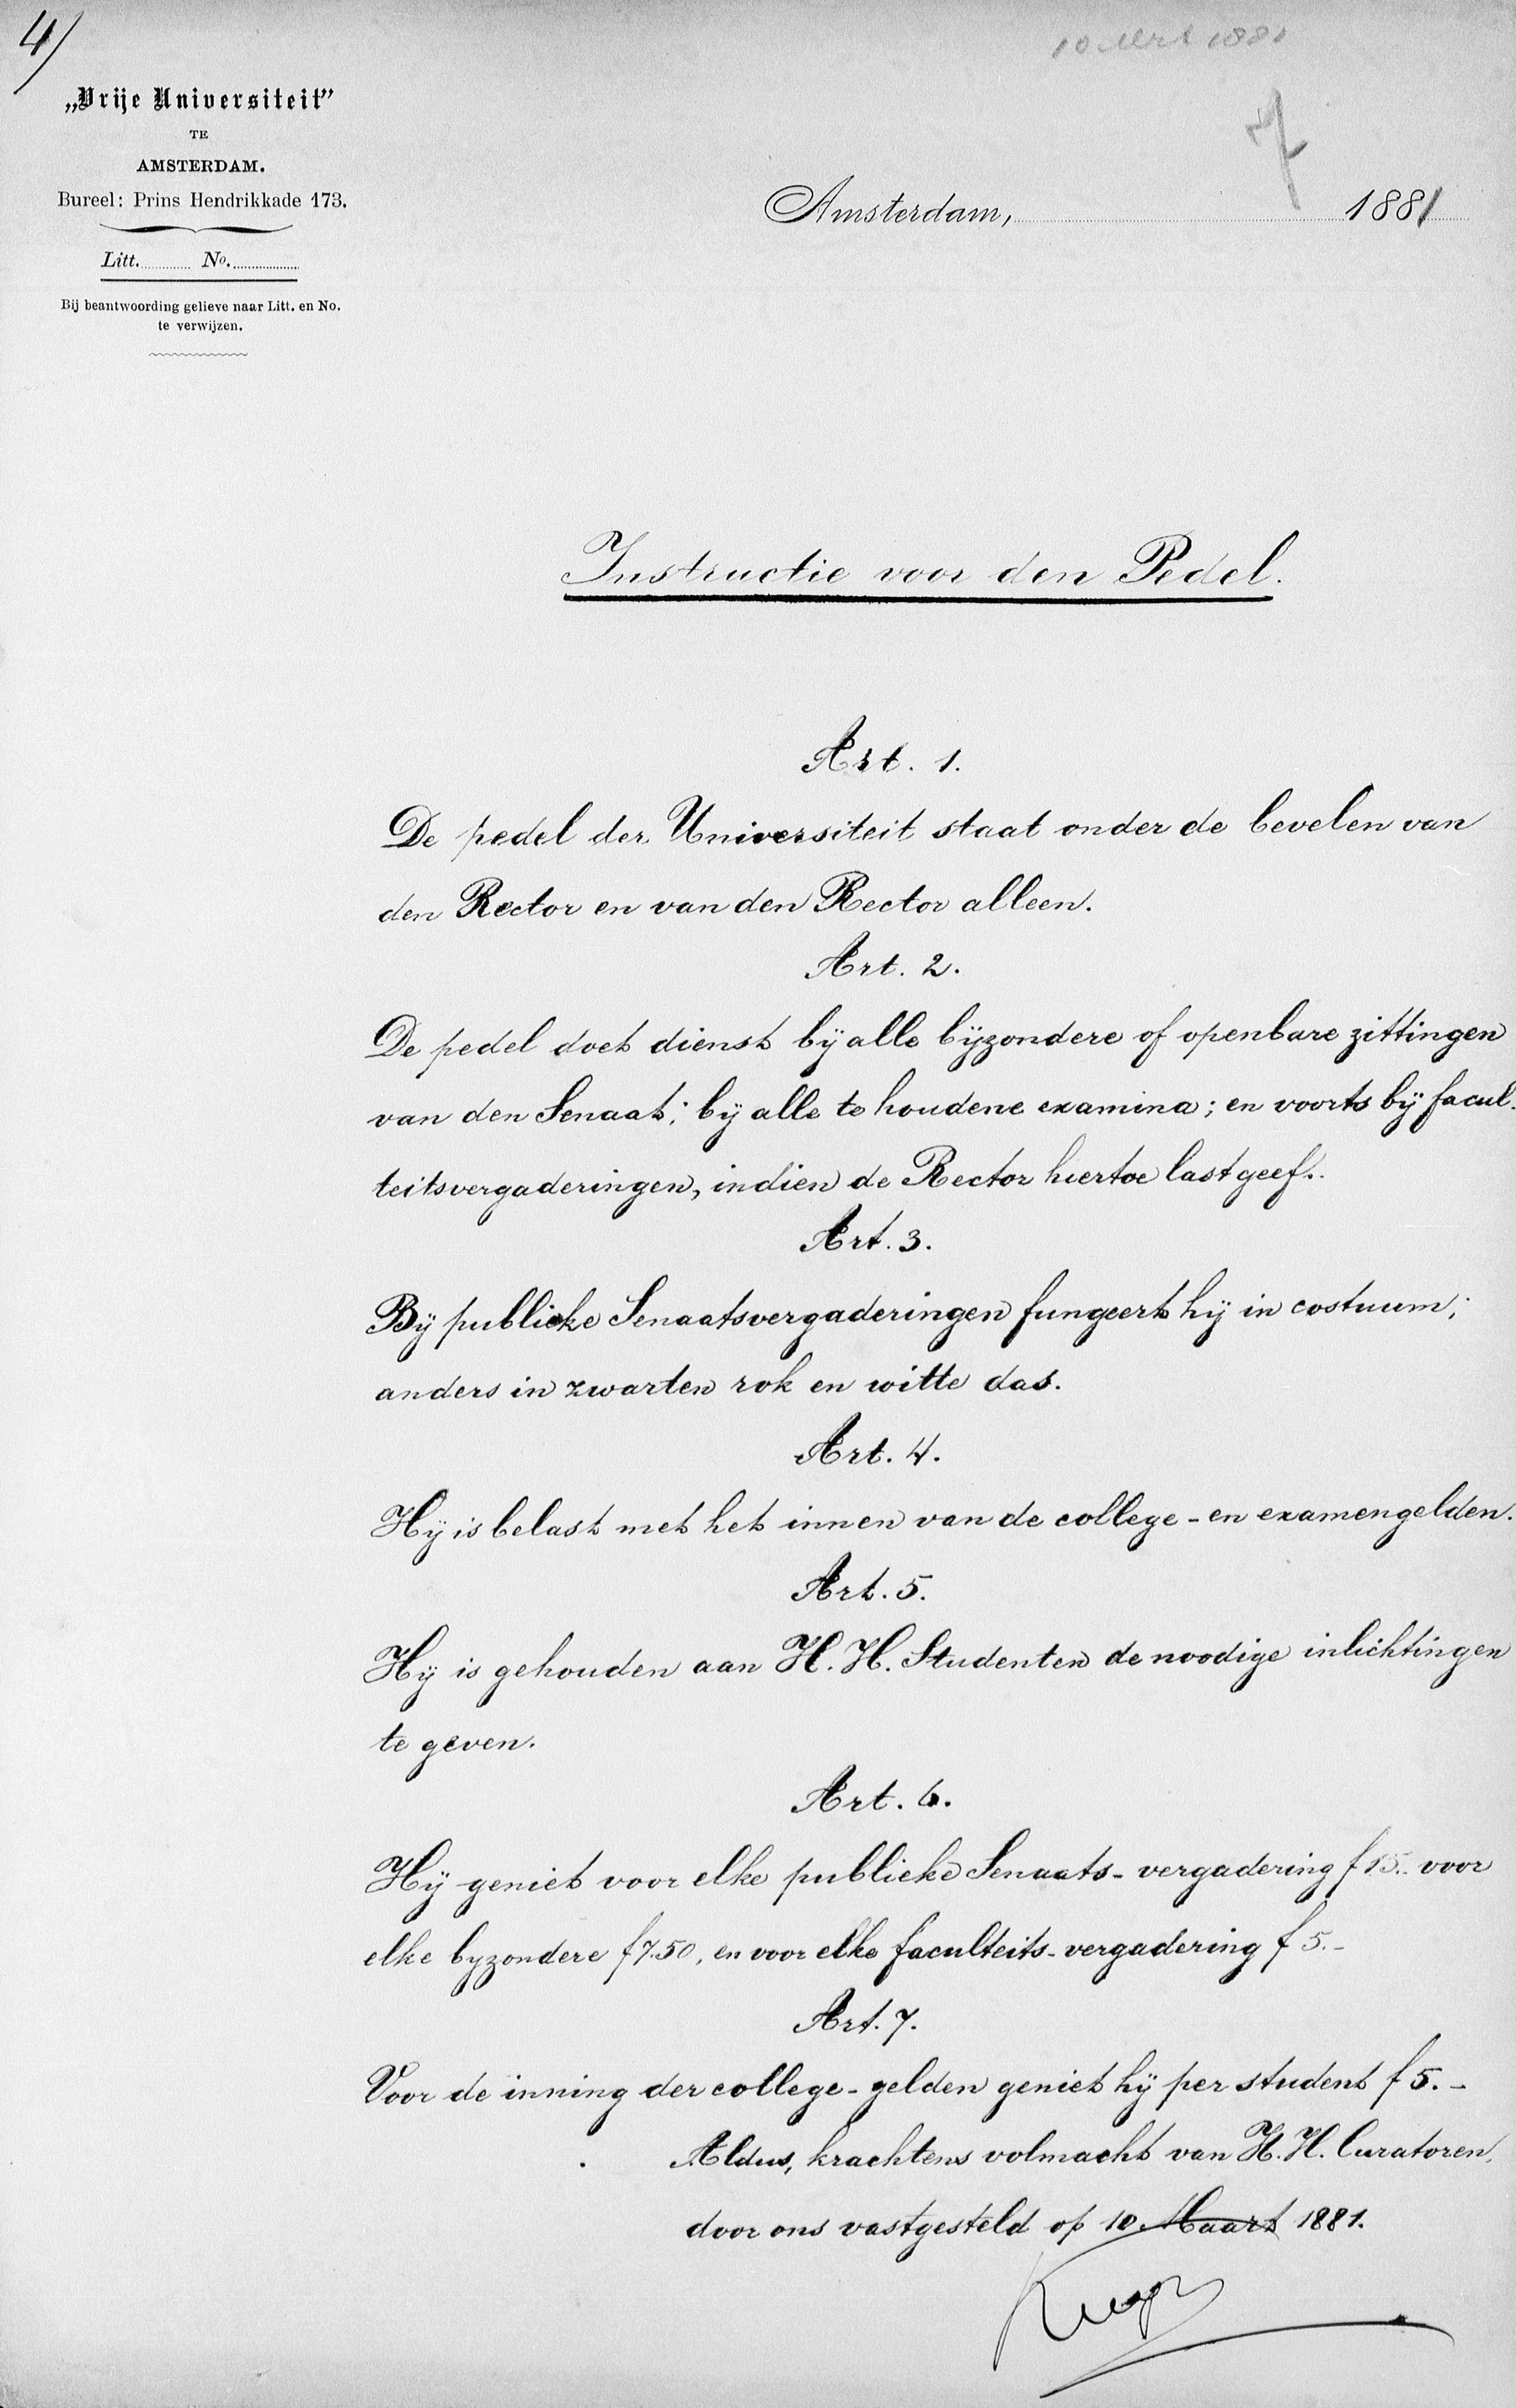 4/
10 Mrt 1881
7
„Vrije Universiteit”
TE
AMSTERDAM.
Bureel: Prins Hendrikkade 173.
Litt. No.
Bij beantwoording gelieve naar Litt. en No.
te verwijzen.
Amsterdam, 1881
Instructie voor den Pedel.
Art. 1.
De pedel der Universiteit staat onder de bevelen van
den Rector en van den Rector alleen.
Art. 2.
De pedel doet dienst bij alle bijzondere of openbare zittingen
van den Senaat; bij alle te houdene examina; en voorts bij facul-
teitsvergaderingen, indien de Rector hiertoe last geeft.
Art. 3.
Bij publieke Senaatsvergaderingen fungeert hij in costuum;
anders in zwarten rok en witte das.
Art. 4.
Hij is belast met het innen van de college- en examengelden.
Art. 5.
Hij is gehouden aan H. H. Studenten de noodige inlichtingen
te geven.
Art. 6.
Hij geniet voor elke publieke Senaats-vergadering f 15.- voor
elke byzondere f 7.50, en voor elke faculteits-vergadering f 5.-
Art. 7.
Voor de inning der college-gelden geniet hij per student f 5.-
Aldus, krachtens volmacht van H. H. Curatoren,
door ons vastgesteld op 10 Maart 1881.
Kuyper